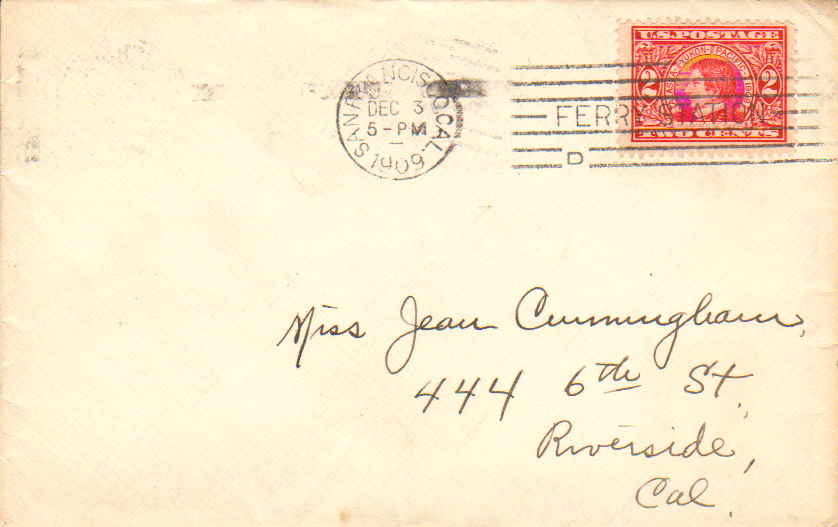 U.S. POSTAGE
ALASKA-YUKON-PACIFIC
2 2
TWO CENTS
SAN FRANCISCO, CAL.
DEC 3
5-PM
1909
FERRY STATION
D
Miss Jean Cunningham,
444 6th St.,
Riverside,
Cal.